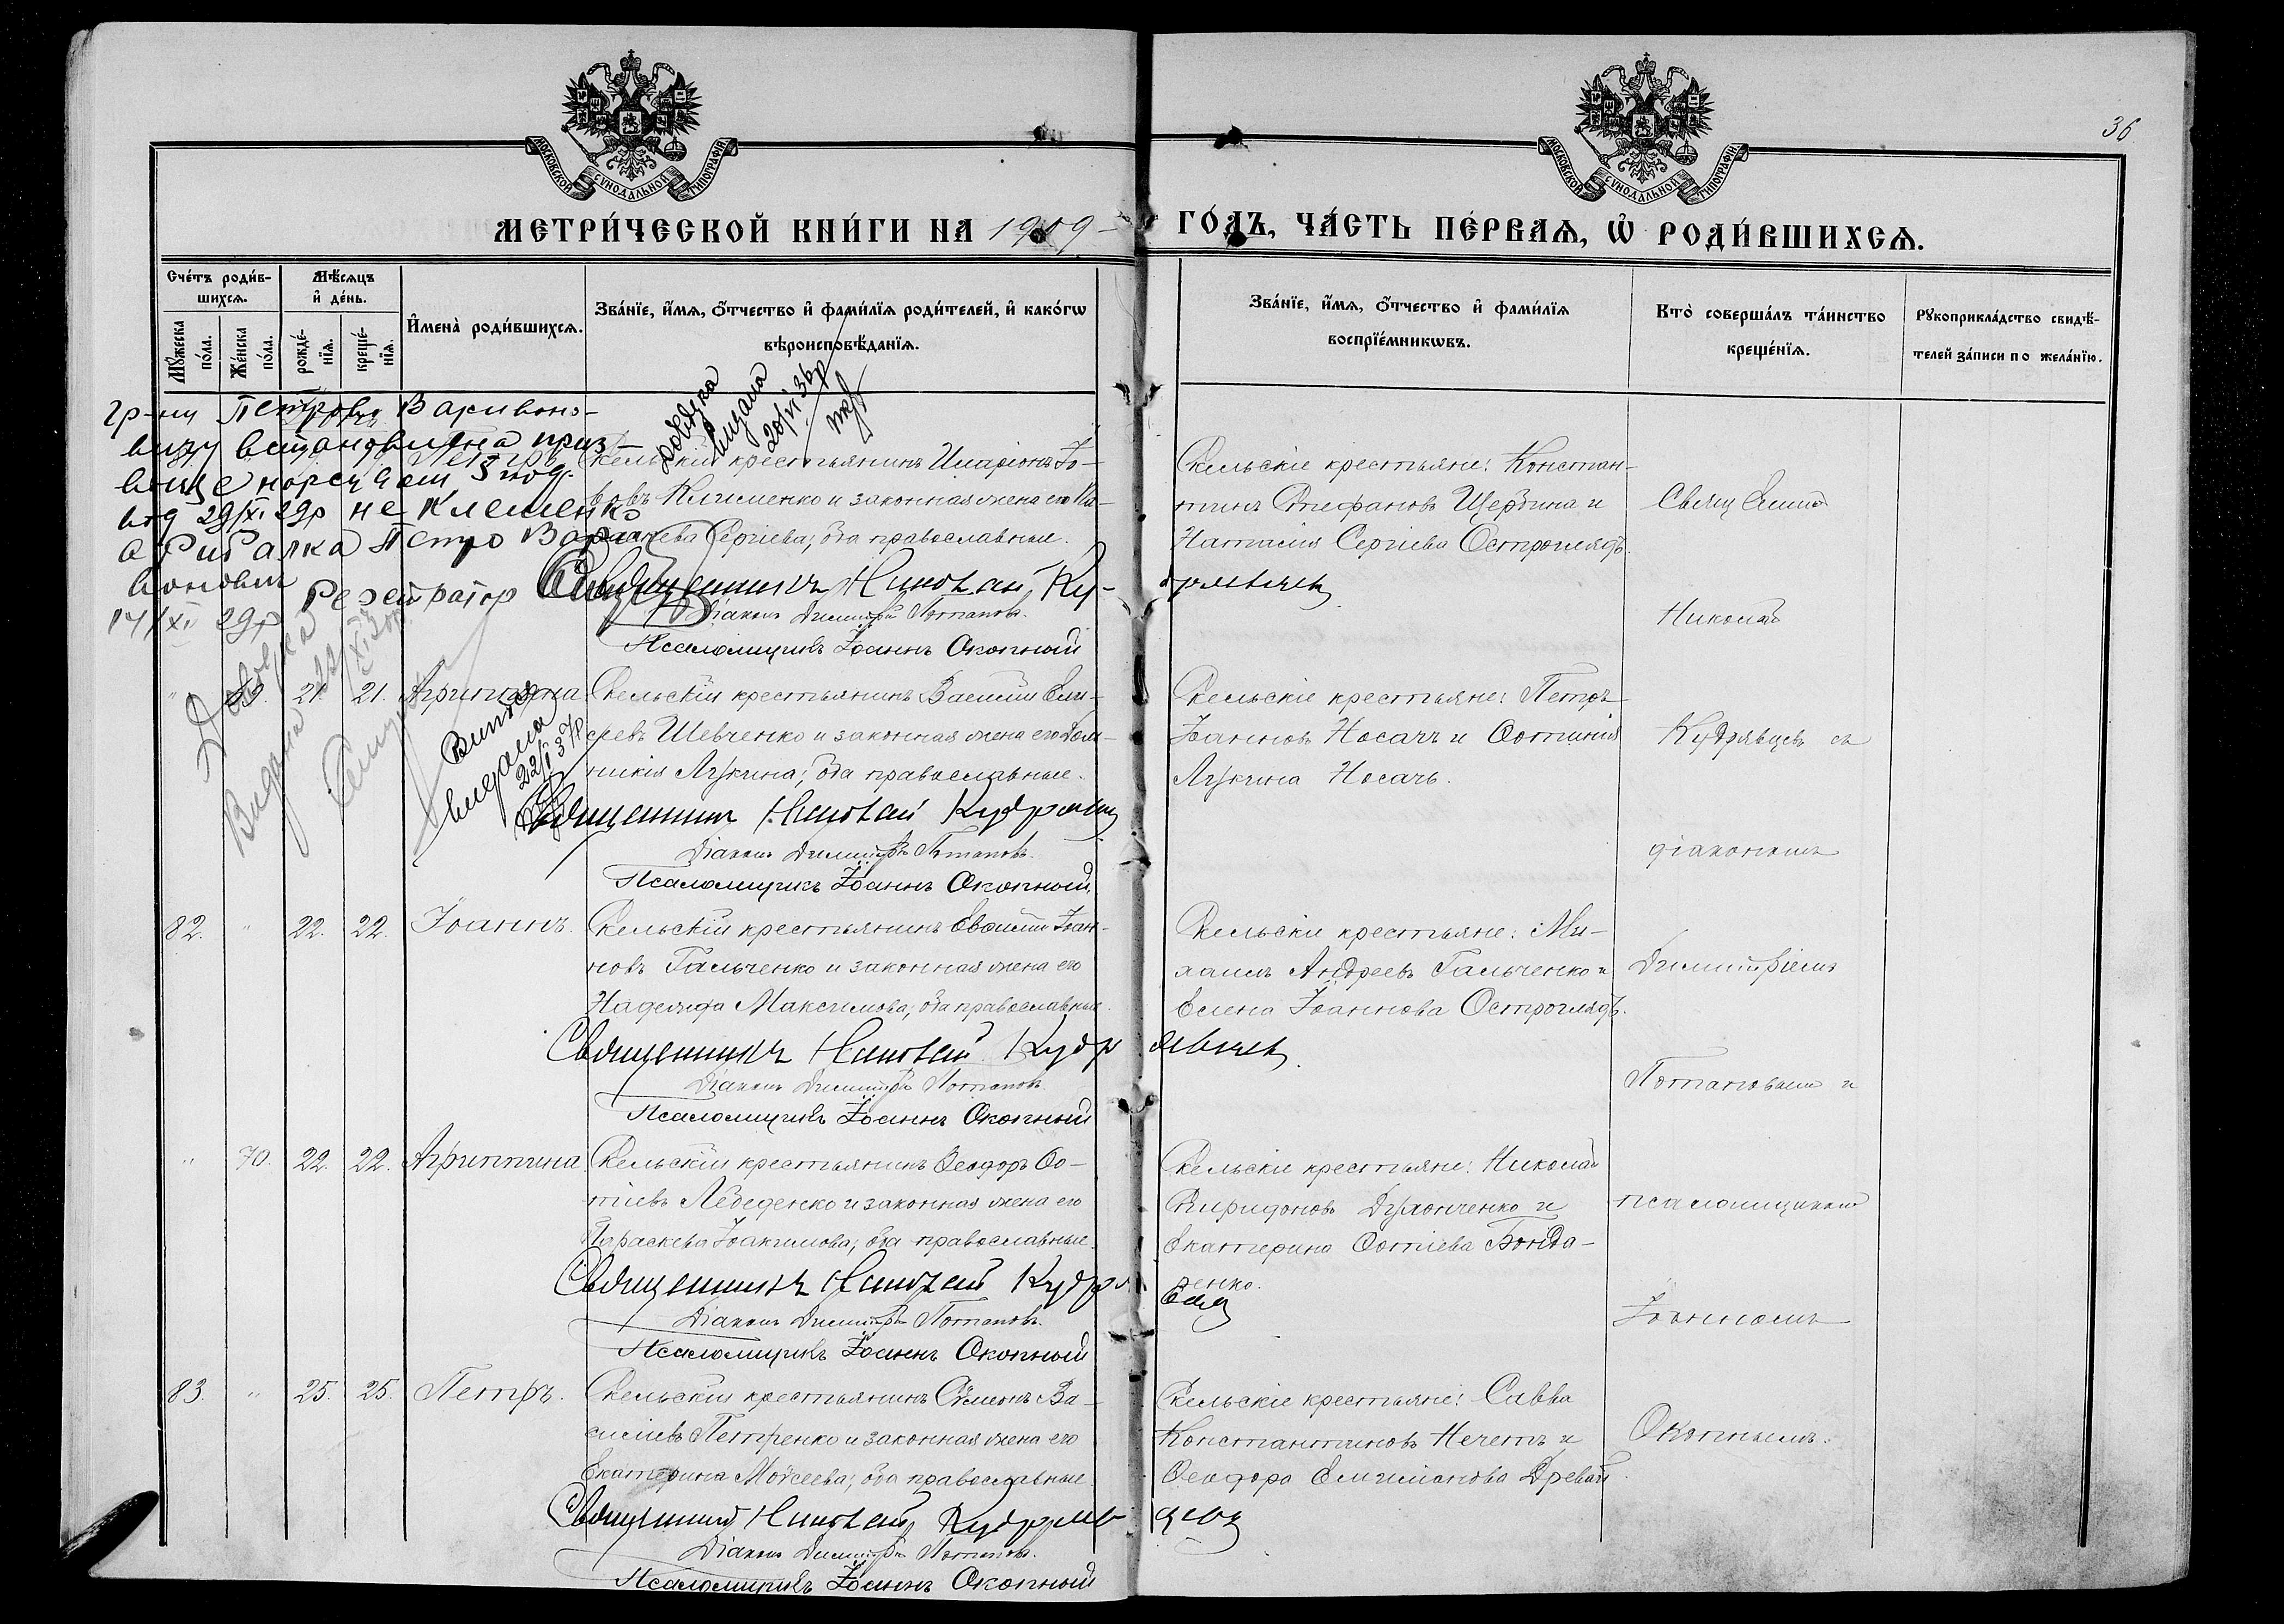 36
МОСКОВСКОЙ СУНОДАЛЬНОЙ ТИПОГРАФІИ
МОСКОВСКОЙ СУНОДАЛЬНОЙ ТИПОГРАФІИ
МЕТРИ́ЧЕСКОЙ КНИ́ГИ НА 1909 ГО́ДЪ, ЧА́СТЬ ПЕ́РВАѦ, Ѡ҆ РОДИ́ВШИХСѦ.
Счéтъ роди́в-
шихсѧ.
Мꙋ́жеска по́ла.
Же́нска по́ла.
Мѣ́сѧцъ
и҆ де́нь.
рождé-
нїѧ.
крещé-
нїѧ.
И҆мена̀ роди́вшихсѧ.
Зва́нїе, и҆́мѧ, ѻ҆́тчество и҆ фами́лїѧ роди́телей, и҆ како́гѡ
вѣроисповѣ́данїѧ.
Зва́нїе, и҆́мѧ, ѻ҆́тчество и҆ фами́лїѧ
воспрїе́мникѡвъ.
Кто̀ соверша́лъ та́инство
креще́нїѧ.
Рꙋкоприкла́дство свидѣ́-
телей за́писи по жела́нїю.
гр-ну Петрови Варивоно-
вичу встановлена приз-
вище
29/XI 29р не Клеменко
а Рибалка Петро Вари-
вонович
14/XI 29р Реєстратор
Довідка
видана
20/VI 36р
Скельскій крестьянинъ Иларіонъ Іо-
вовъ Клименко и законная жена его
Сергіева; оба православные.
Священникъ Николай Кудрявцевъ
Діаконъ Димитрій Потаповъ.
Псаломщикъ Іоаннъ Окопный
Скельскіе крестьяне: Констан-
тинъ Стефановъ Щербина и
Наталия Сергіева Остроглядъ.
Довідка
Видана
Витяг
видана
22/I 37р
" 69. 21. 21. Агриппина
Скельскій крестьянинъ Василій Ели-
сеевъ Шевченко и законная жена его
Лукина; оба православные.
Священникъ Николай Кудрявцевъ
Діаконъ Димитрій Потаповъ.
Псаломщикъ Іоаннъ Окопный
Скельскіе крестьяне: Петръ
Іоанновъ Носачъ и Фотинія
Лукина Носачъ.
82. " 22. 22. Іоаннъ.
Скельскій крестьянинъ Евѳимій Іоан-
новъ Гальченко и законная жена его
Надежда Максимова; оба православные.
Священникъ Николай Кудрявцевъ
Діаконъ Димитрій Потаповъ
Псаломщикъ Іоаннъ Окопный
Скельскіе крестьяне: Ми-
хаилъ Андреевъ Гальченко и
Елена Іоаннова Остроглядъ.
" 70. 22. 22. Агриппина
Скельскій крестьянинъ Ѳеодоръ Фо-
тіевъ Лебеденко и законная жена его
Параскева Іоакимова; оба православные.
Священникъ Николай Кудрявцевъ
Діаконъ Димитрій Потаповъ.
Псаломщикъ Іоаннъ Окопный
Скельскіе крестьяне: Николай
Спиридоновъ и
Екатерина Фотіева Бонда-
ренко.
83. " 25. 25. Петръ.
Скельскій крестьянинъ Сѵмеонъ Ва-
силіевъ Петренко и законная жена его
Екатерина Моѵсеева; оба православные
Священникъ Николай Кудрявцевъ
Діаконъ Димитрій Потаповъ.
Псаломщикъ Іоаннъ Окопный
Скельскіе крестьяне: Савва
Константиновъ Нечетъ и
Ѳеодора
Свящ
Николай
Кудрявцевъ съ
діакономъ
Димитріемъ
Потаповымъ и
псаломщикомъ
Іоанномъ
Окопнымъ.